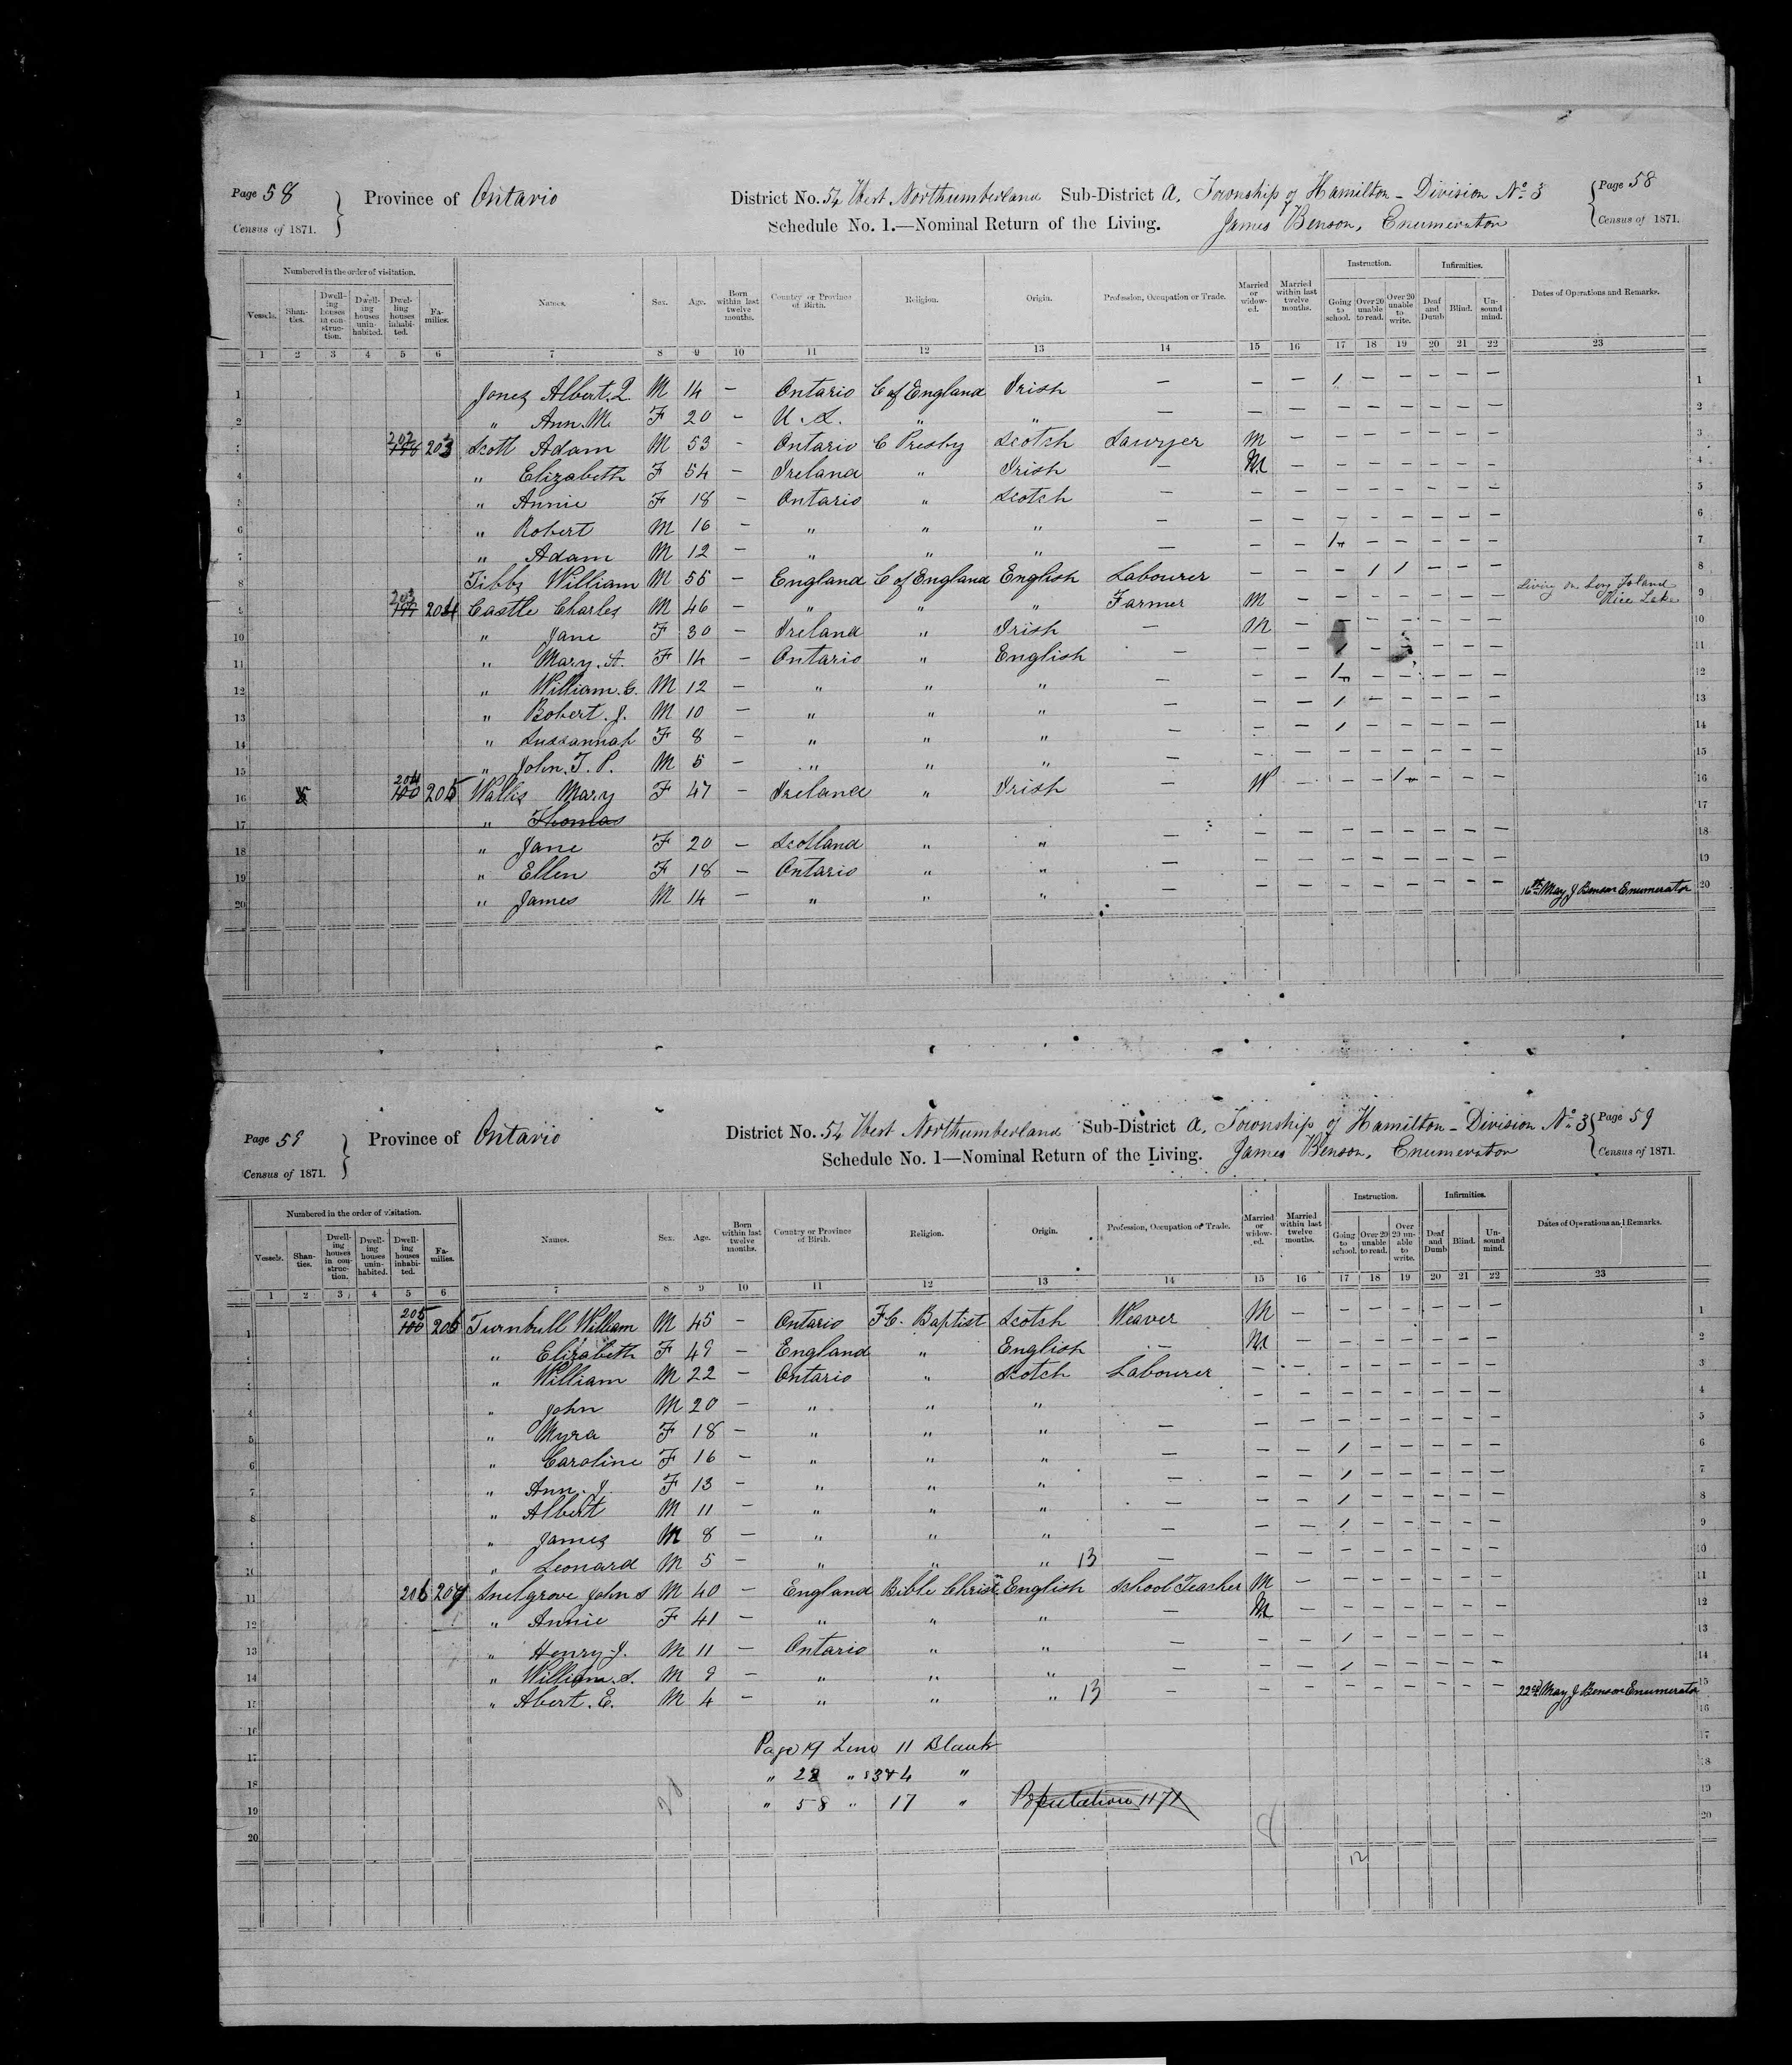 Page 58 Province of Ontario District No. 54 West Northumberland Sub-District A, Township of Hamilton - Division No 3 Page 58
Census of 1871. Schedule No. 1.—Nominal Return of the Living. James Benson, Enumerator Census of 1871.
Numbered in the order of visitation. Names. Sex. Age. Born within last twelve months. Country or Province of Birth. Religion. Origin. Profession, Occupation or Trade. Married or widowed. Married within last twelve months. Instruction. Infirmities. Dates of Operations and Remarks.
Vessels. Shanties. Dwelling houses in construction. Dwelling houses uninhabited. Dwelling houses inhabited. Families. Going to school. Over 20 unable to read. Over 20 unable to write. Deaf and Dumb Blind. Unsound mind.
1 2 3 4 5 6 7 8 9 10 11 12 13 14 15 16 17 18 19 20 21 22 23
1 Jones Albert. M 14 — Ontario C of England Irish — — — 1 — — — — — 1
2 " Ann. M. F 20 — U. S. " " — — — — — — — — — 2
3 202 203 Scott Adam M 53 — Ontario C Presby Scotch Lawyer M — — — — — — — 3
4 " Elizabeth F 54 — Ireland " Irish — M — — — — — — — 4
5 " Annie F 18 — Ontario " Scotch — — — — — — — — — 5
6 " Robert M 16 — " " " — — — — — — — — — 6
7 " Adam M 12 — " " " — — — 1 — — — — — 7
8 Tibbs William M 55 — England C of England English Labourer — — — 1 1 — — — 8
9 203 204 Castle Charles M 46 — " " " Farmer M — — — — — — — Living on Long Island Rice Lake 9
10 " Jane F 30 — Ireland " Irish — M — — — — — — — 10
11 " Mary. A. F 14 — Ontario " English — — — 1 — — — — — 11
12 " William. C. M 12 — " " " — — — 1 — — — — — 12
13 " Robert. J. M 10 — " " " — — — 1 — — — — — 13
14 " Sussannah F 8 — " " " — — — 1 — — — — — 14
15 " John. T. P. M 5 — " " " — — — — — — — — — 15
16 204 205 Wallis Mary F 47 — Ireland " Irish — W — — — 1 — — — 16
17 " Thomas 17
18 " Jane F 20 — Scotland " " — — — — — — — — — 18
19 " Ellen F 18 — Ontario " " — — — — — — — — — 19
20 " James M 14 — " " " — — — — — — — — — 16th May J Benson Enumerator 20
Page 59 Province of Ontario District No. 54 West Northumberland Sub-District A, Township of Hamilton - Division No 3 Page 59
Census of 1871. Schedule No. 1—Nominal Return of the Living. James Benson, Enumerator Census of 1871.
Numbered in the order of visitation. Names. Sex. Age. Born within last twelve months. Country or Province of Birth. Religion. Origin. Profession, Occupation or Trade. Married or widowed. Married within last twelve months. Instruction. Infirmities. Dates of Operations and Remarks.
Vessels. Shanties. Dwelling houses in construction. Dwelling houses uninhabited. Dwelling houses inhabited. Families. Going to school. Over 20 unable to read. Over 20 unable to write. Deaf and Dumb Blind. Unsound mind.
1 2 3 4 5 6 7 8 9 10 11 12 13 14 15 16 17 18 19 20 21 22 23
1 205 206 Turnbull William M 45 — Ontario F C. Baptist Scotch Weaver M — — — — — — — 1
2 " Elizabeth F 49 — England " English — M — — — — — — — 2
3 " William M 22 — Ontario " Scotch Labourer — — — — — — — — 3
4 " John M 20 — " " " — — — — — — — — 4
5 " Myra F 18 — " " " — — — — — — — — — 5
6 " Caroline F 16 — " " " — — — 1 — — — — — 6
7 " Ann. J. F 13 — " " " — — — 1 — — — — — 7
8 " Albert M 11 — " " " — — — 1 — — — — — 8
9 " James M 8 — " " " — — — 1 — — — — — 9
10 " Leonard M 5 — " " " 13 — — — — — — — — — 10
11 206 207 Snelgrove John S M 40 — England Bible Christ English School Teacher M — — — — — — —
12 " Annie F 41 — " " " — M — — — — — — — 12
13 " Henry J. M 11 — Ontario " " — — — 1 — — — — — 13
14 " William. S. M 9 — " " " — — — 1 — — — — — 14
15 " Abert. E. M 4 — " " " 13 — — — — — — — — — 22nd May J Benson Enumerator 15
16 16
17 Page 19 Line 11 Blank 17
18 " 22 " 3 & 4 " 18
19 " 58 " 17 " Population 1171 19
20 20
12